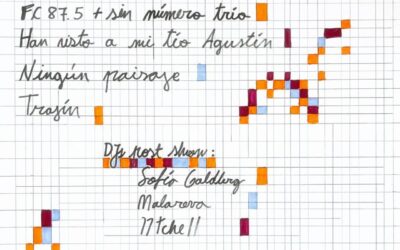 FC 87.5 + sin número trío
Han visto a mi tío Agustín
Ningún paisaje
Trafín
DJs post show:
Sofío Galdberg
Malareva
17tchell